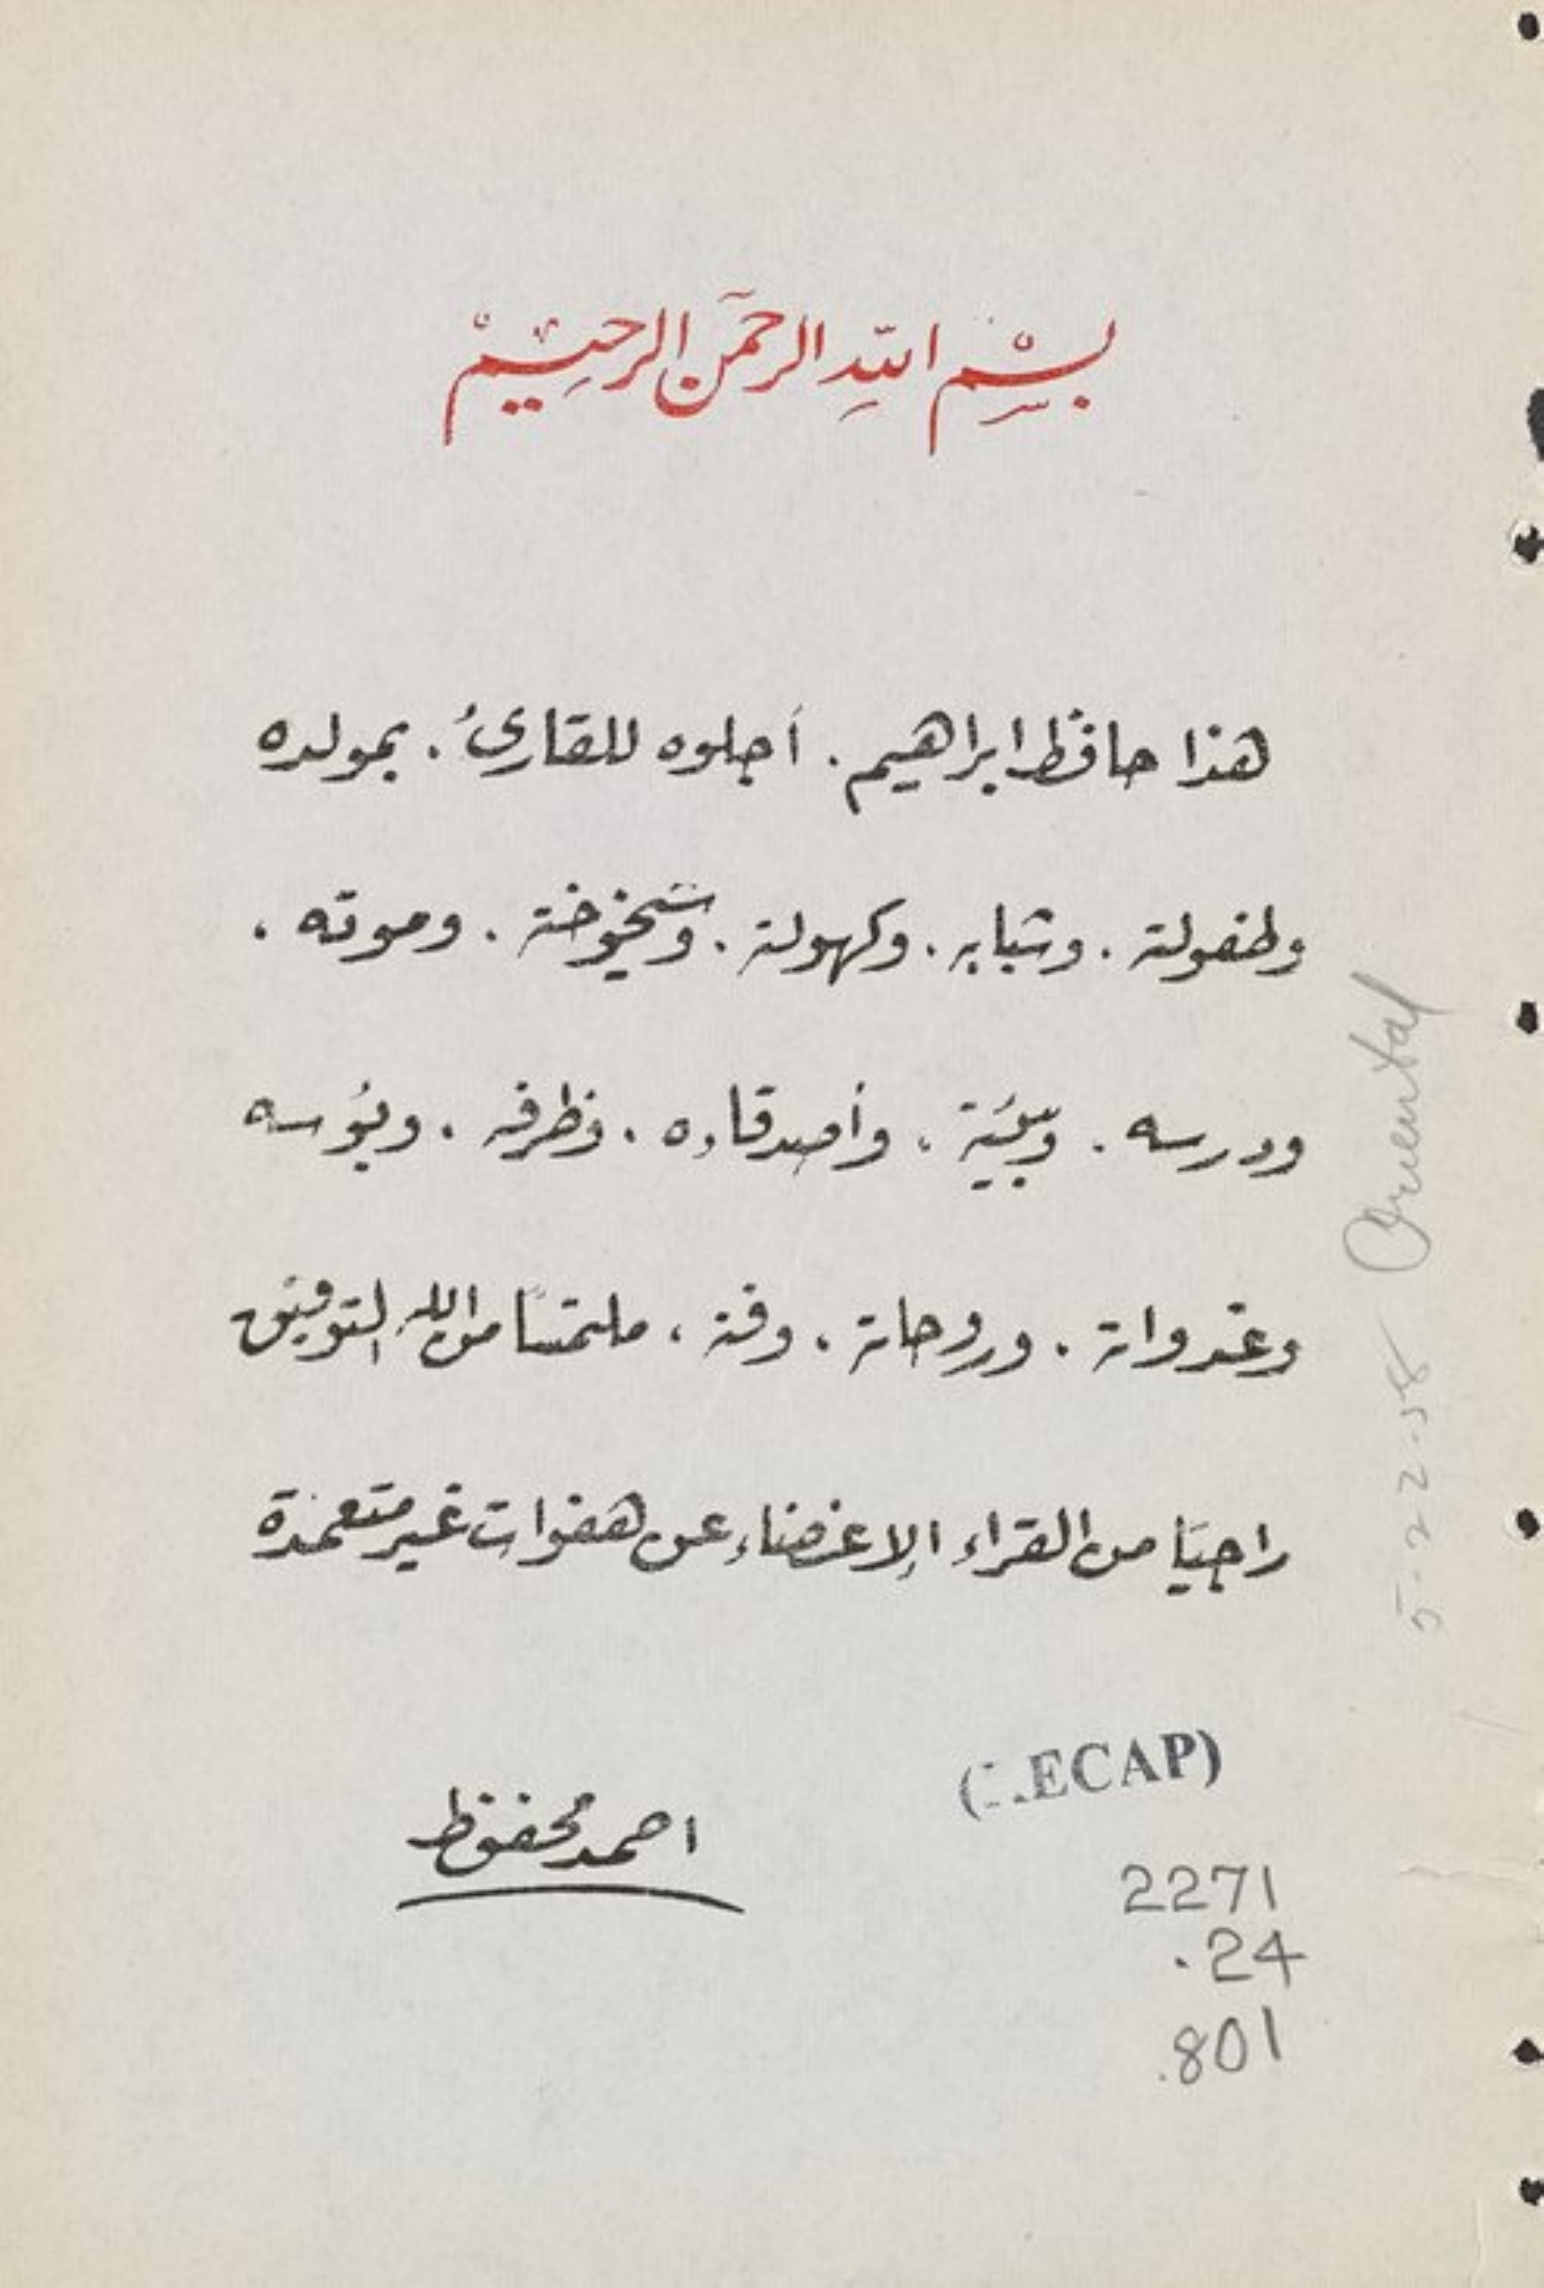 بِسْمِ اللّٰهِ الرحمٰن الرحِيْمْ
هذا حافظ ابراهيم . أجلوه للقارئُ . بمولده
وطفولته . وشبابه . وكهولته . وشيخوخته . وموته .
ودرسه . وبيئته . وأصدقاءه . وظرفه . وبؤسه
وغدواته . وروحاته . وفنه . ملتمسًا من الله التوفيق
راجيًا من القراء الإغضاء عن هفوات غير متعمدة
احمد محفوظ
ECAP)
2271
.24
.801
Oriental
5-22-58